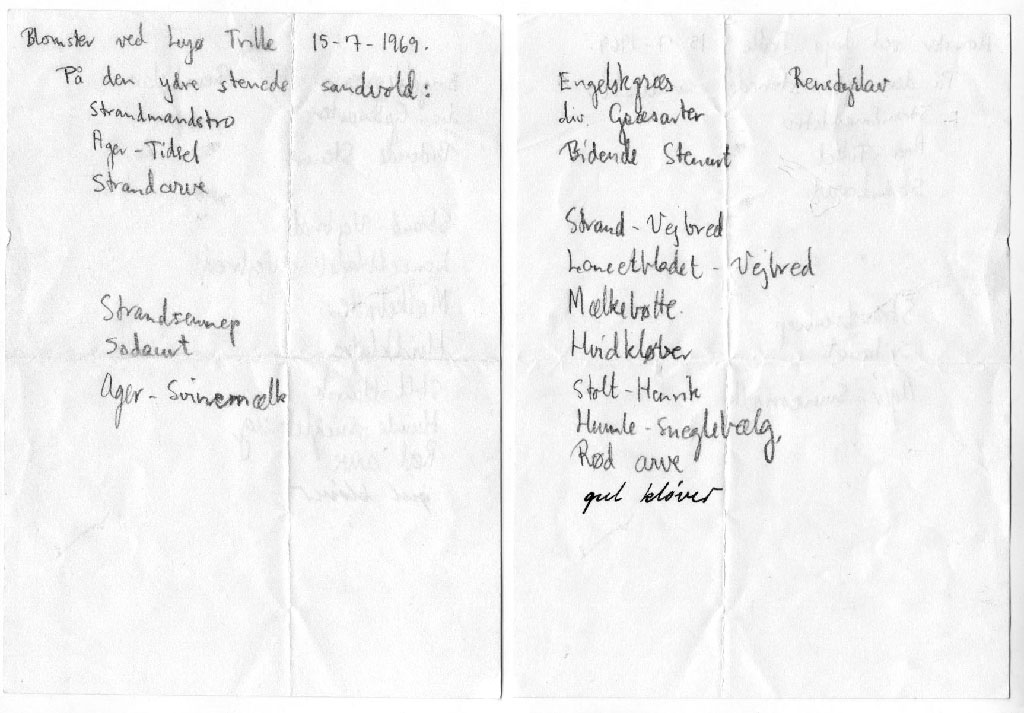 Blomster ved Lyø Trille 15-7-1969.
På den ydre stenede sandvold:
Strandmandstro
Ager-Tidsel
Strandarve
Strandsennep
Sodaurt
Ager-Svinemælk
Engelskgræs Rensdyrslav
div. Græsarter
Bidende Stenurt
Strand-Vejbred
Lancetbladet-Vejbred
Mælkebøtte.
Hvidkløver
Stolt-Henrik
Humle-Sneglebælg,
Rød arve
gul kløver